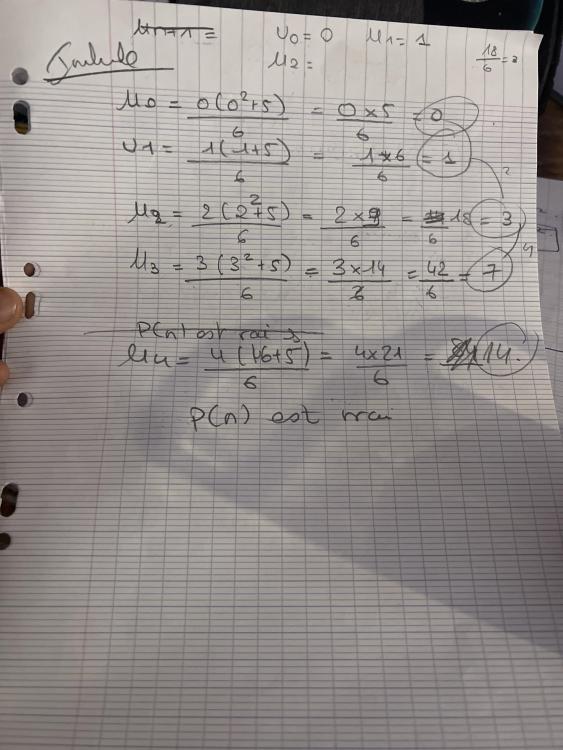 U0 = 0 U1 = 1
U2 =
18/6 = 3
U0 = 0(0²+5)/6 = 0×5/6 = 0
U1 = 1(1+5)/6 = 1×6/6 = 1
U2 = 2(2²+5)/6 = 2×9/6 = 18/6 = 3
U3 = 3(3²+5)/6 = 3×14/6 = 42/6 = 7
P(n) est vrai
U4 = 4(16+5)/6 = 4×21/6 = 14.
P(n) est vrai